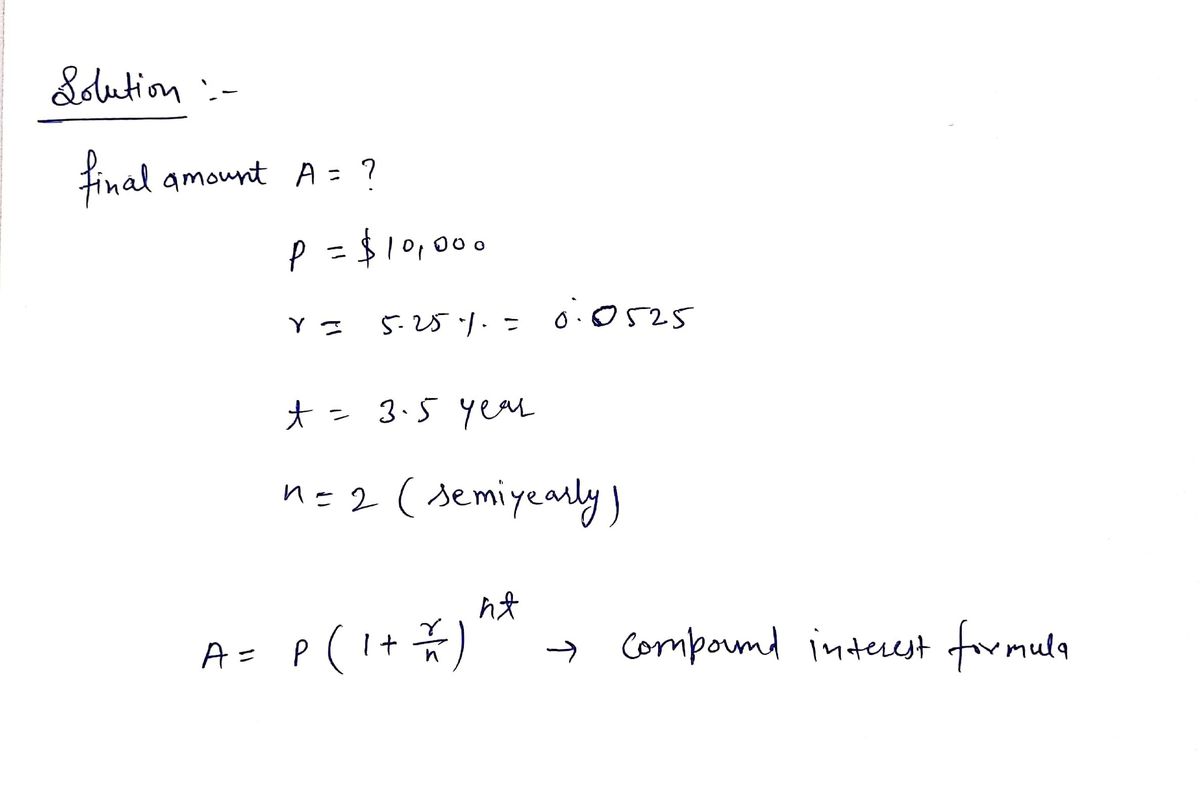 Solution :-
final amount A = ?
P = $10,000
r = 5.25 % = 0.0525
t = 3.5 year
n = 2 (semiyearly)
A = P(1 + r/n)^nt → compound interest formula